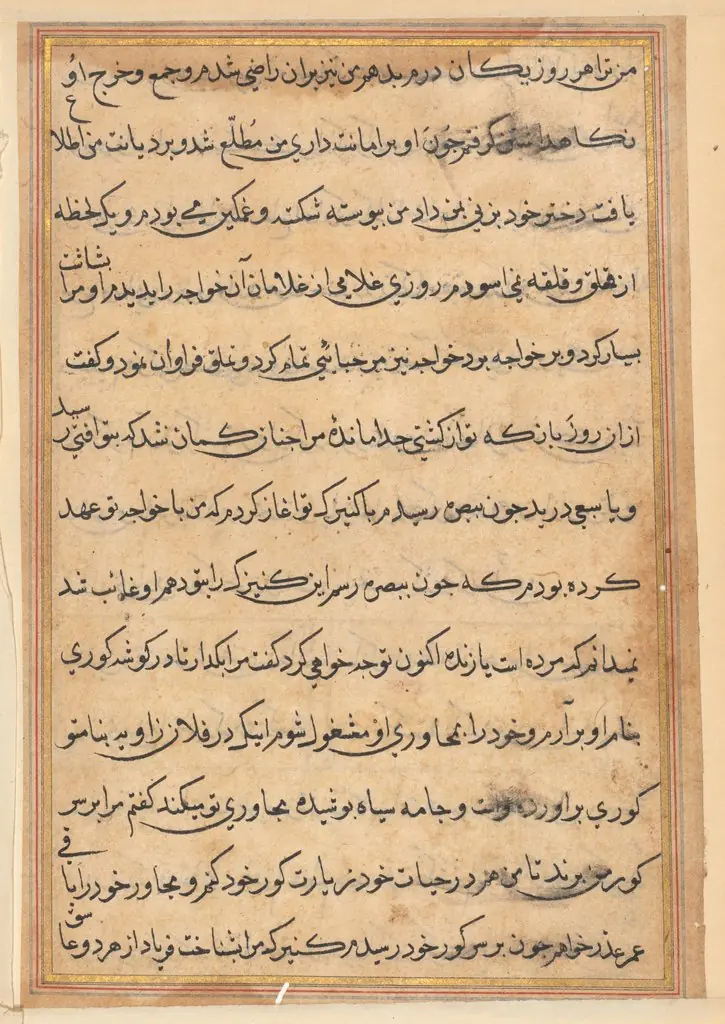 من ترا هر روز یکان درم بدهم من نیز بران راضی شدم و جمع و خرج او
نکاهداشتن کرفتم جون او بر امانت داری من مُطلّع شد و بر دیانت من اطلاع
یافت دختر خود بزنی بمن داد من بیوسته شکسته و غمکین می بودم و یک لحظه
از تملق و قلقه نمی اسودم روزی غلامی از غلامان آن خواجه را بدیدم او مرا بشاشت
بسیار کرد و بر خواجه برد خواجه نیز مرحبائی تمام کرد و تملق فراوان نمود و کفت
از ان روز باز که تو از کشتی جدا مانده مرا جنان کمان نشد که بتو افتی رسید
و یا سبعی درید جون ببصره رسیدم با کنیزک تو اغاز کردم که من با خواجه تو عهد
کرده بودم که جون ببصره رسم این کنیزک را بتو دهم او غائب شد
نمیدانم که مرده است یا زنده اکنون توجه خواهی کرد کفت مرا بکدار تا در کوشه کوری
بنام او بر آرم و خود را بمجاوری او مشغول شوم اینک در فلان زاویه بنام تو
کوری براورده است و جامه سیاه بوشیده مجاوری تو میکند کفتم مرا بر سر
کور من برند تا من هم در حیات خود زیارت کور خود کنم و مجاور خود را باقی
عمر عذر خواهم جون بر سر کور خود رسیدم کنیزک مرا بشناخت فریاد از هر دو عاشق